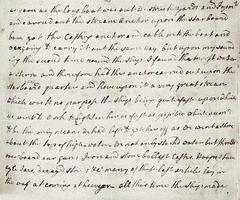 as soon as the Long boat was out we struck yards and Topmts
and carried out the Stream Anchor upon the Starboard
bow got the Costing anchor and cable into the boat and
was going to carry it out the same way but upon my sounding
the second time round the Ship I found the most water
a Stern and therefore had this anchor carried out upon the
Starboard quarter and hove upon it a very great strean
which was to no purpose the Ship being quite fast, upon which
we went to work to lighten her as fast as possible which seem'd
to be the only means we had left to get her off as we went a Shore
about the top of high-water we not only started water but throw'd
over board our guns Iron and stone ballast Casks, Hoops staves
oyle Jars, decay'd stores &c many of these last articles lay in
the way at coming at heavyer all this time the Ship made